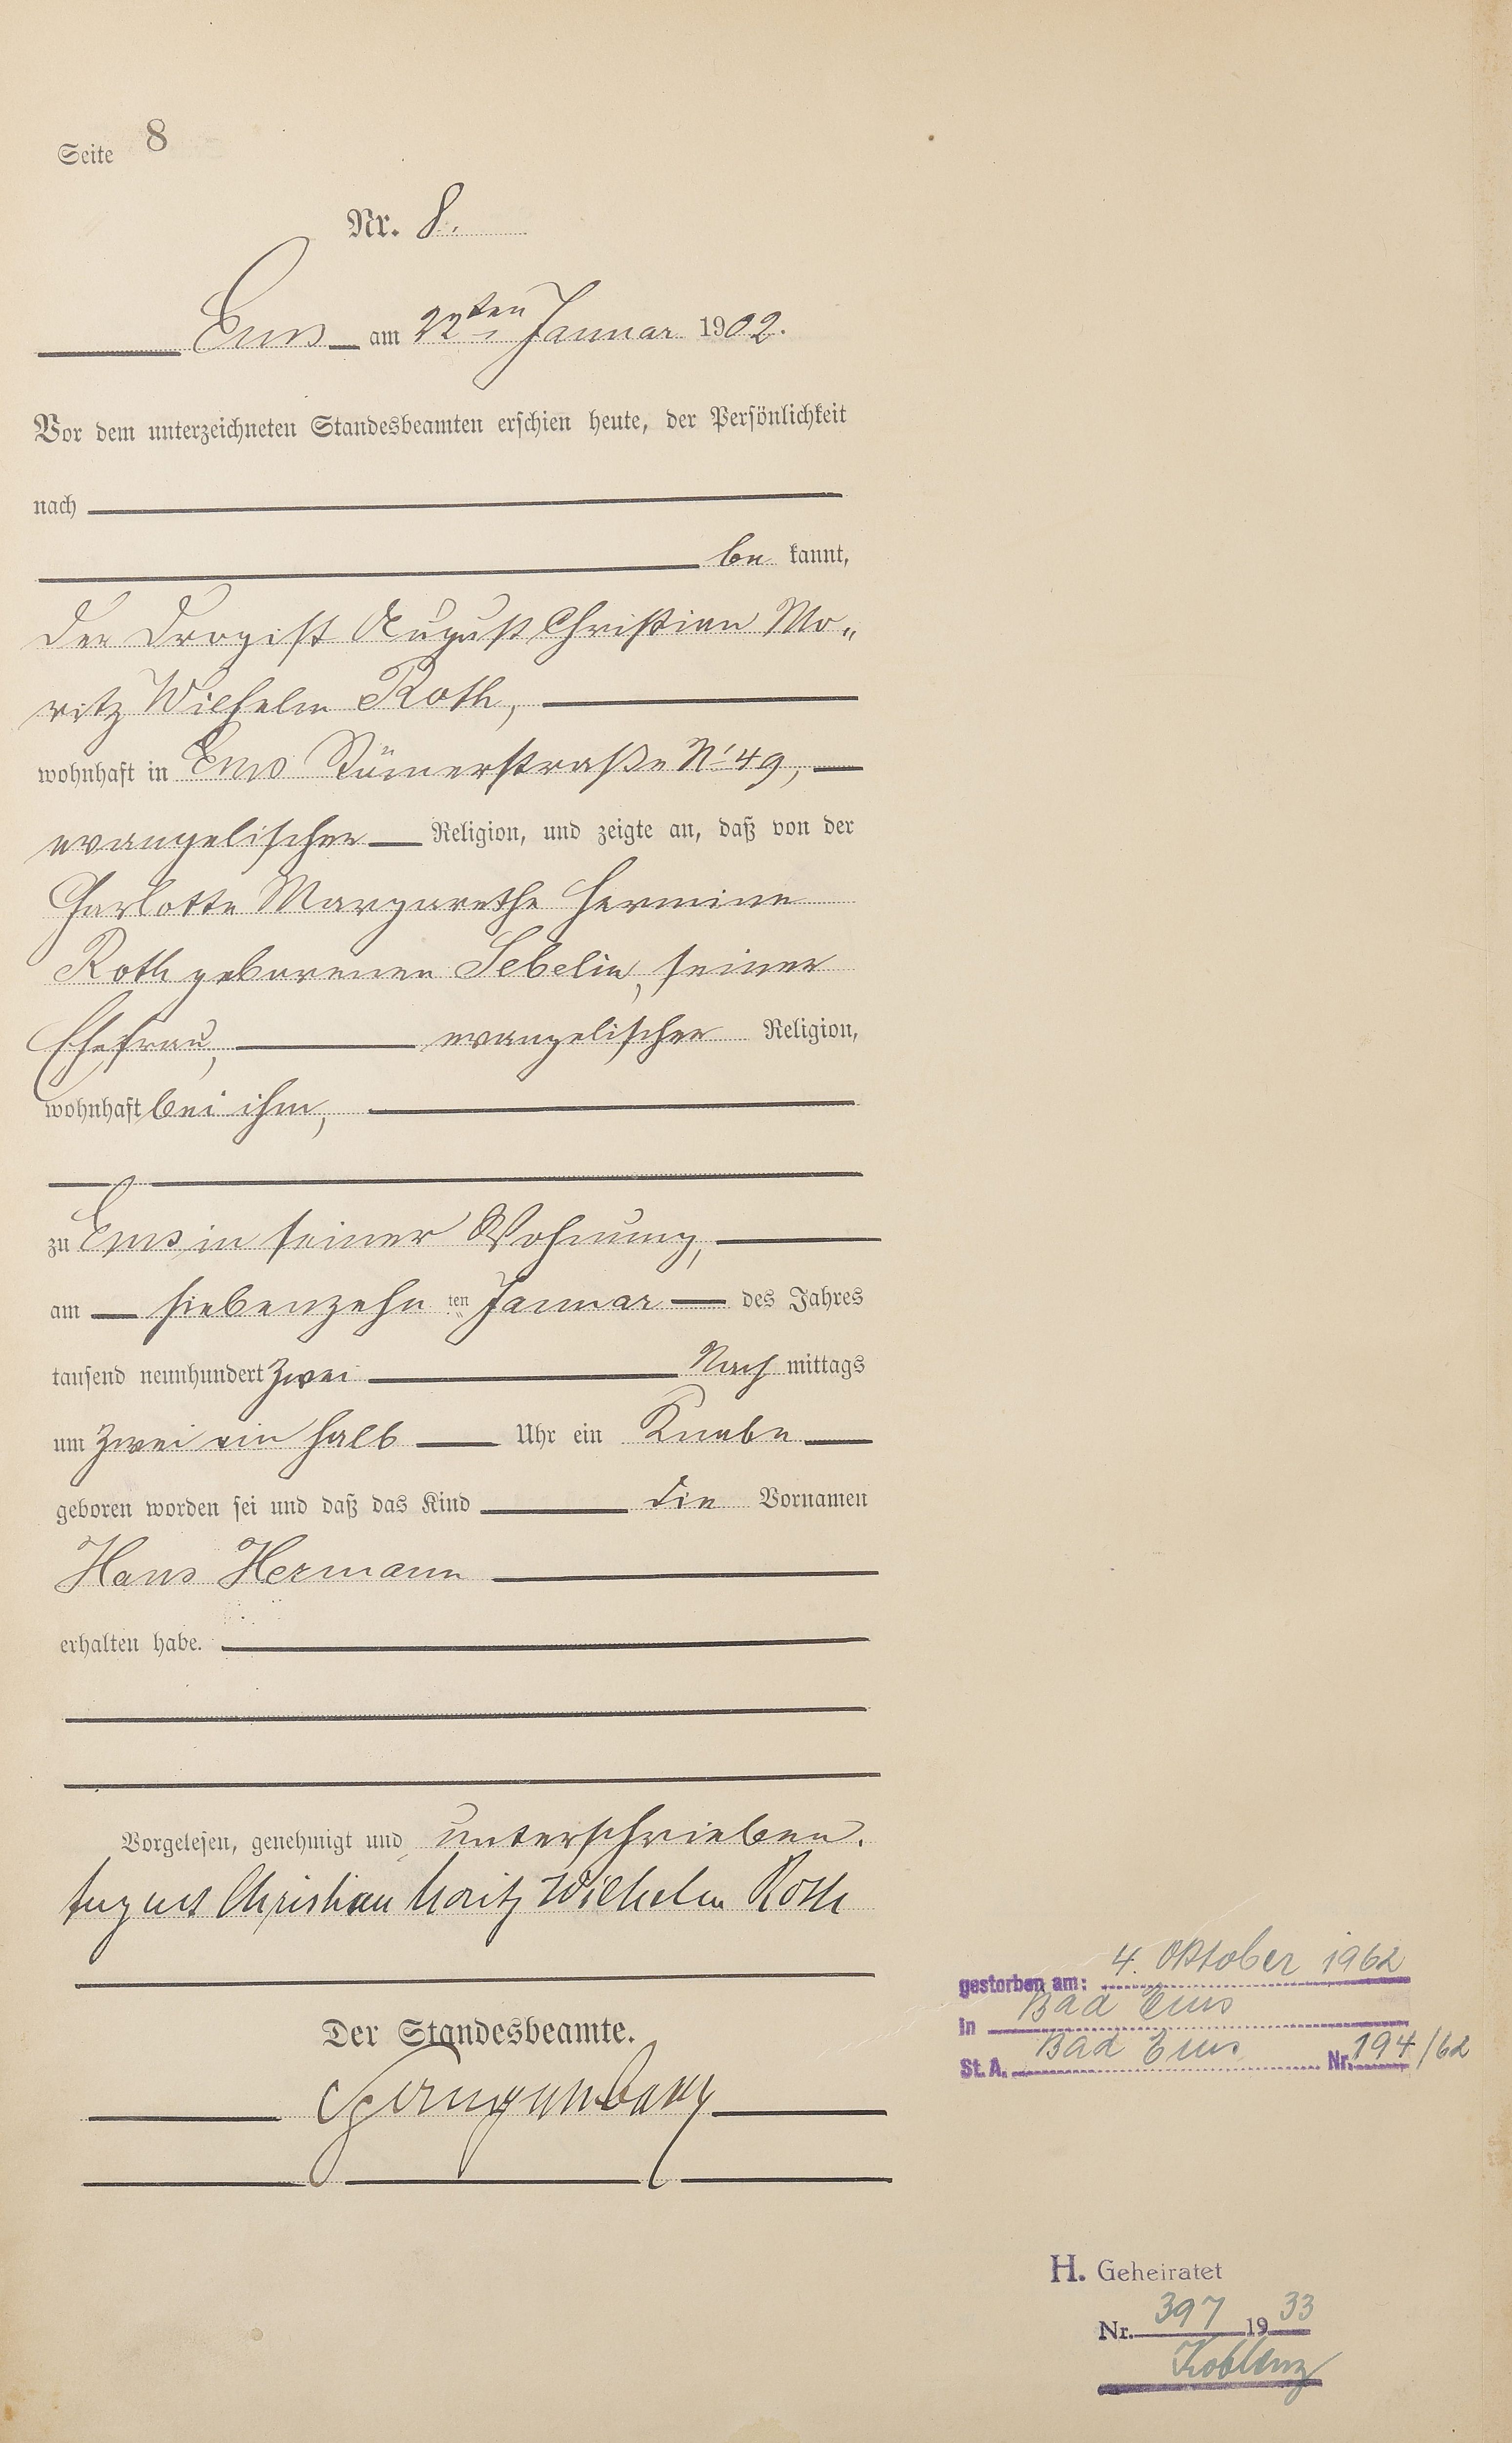 Seite 8
Nr. 8.
Ems am 22ten Januar 1902.
Vor dem unterzeichneten Standesbeamten erschien heute, der Persönlichkeit
nach
be kannt,
der Drogist August Christian Mo„
ritz Wilhelm Roth,
wohnhaft in Ems Römerstraße No 49,
evangelischer Religion, und zeigte an, daß von der
Charlotte Margarethe Hermine
Roth geborenen Sebelin, seiner
Ehefrau, evangelischer Religion,
wohnhaft bei ihm,
zu Ems in seiner Wohnung,
am siebenzehn ten Januar des Jahres
tausend neunhundert zwei Nach mittags
um zwei ein halb Uhr ein Knabe
geboren worden sei und daß das Kind die Vornamen
Hans Hermann
erhalten habe.
Vorgelesen, genehmigt und unterschrieben.
August Christian Moritz Wilhelm Roth
Der Standesbeamte.
gestorben am: 4. Oktober 1962
in Bad Ems
St. A. Bad Ems Nr. 194/62
H. Geheiratet
Nr. 397 1933
Koblenz